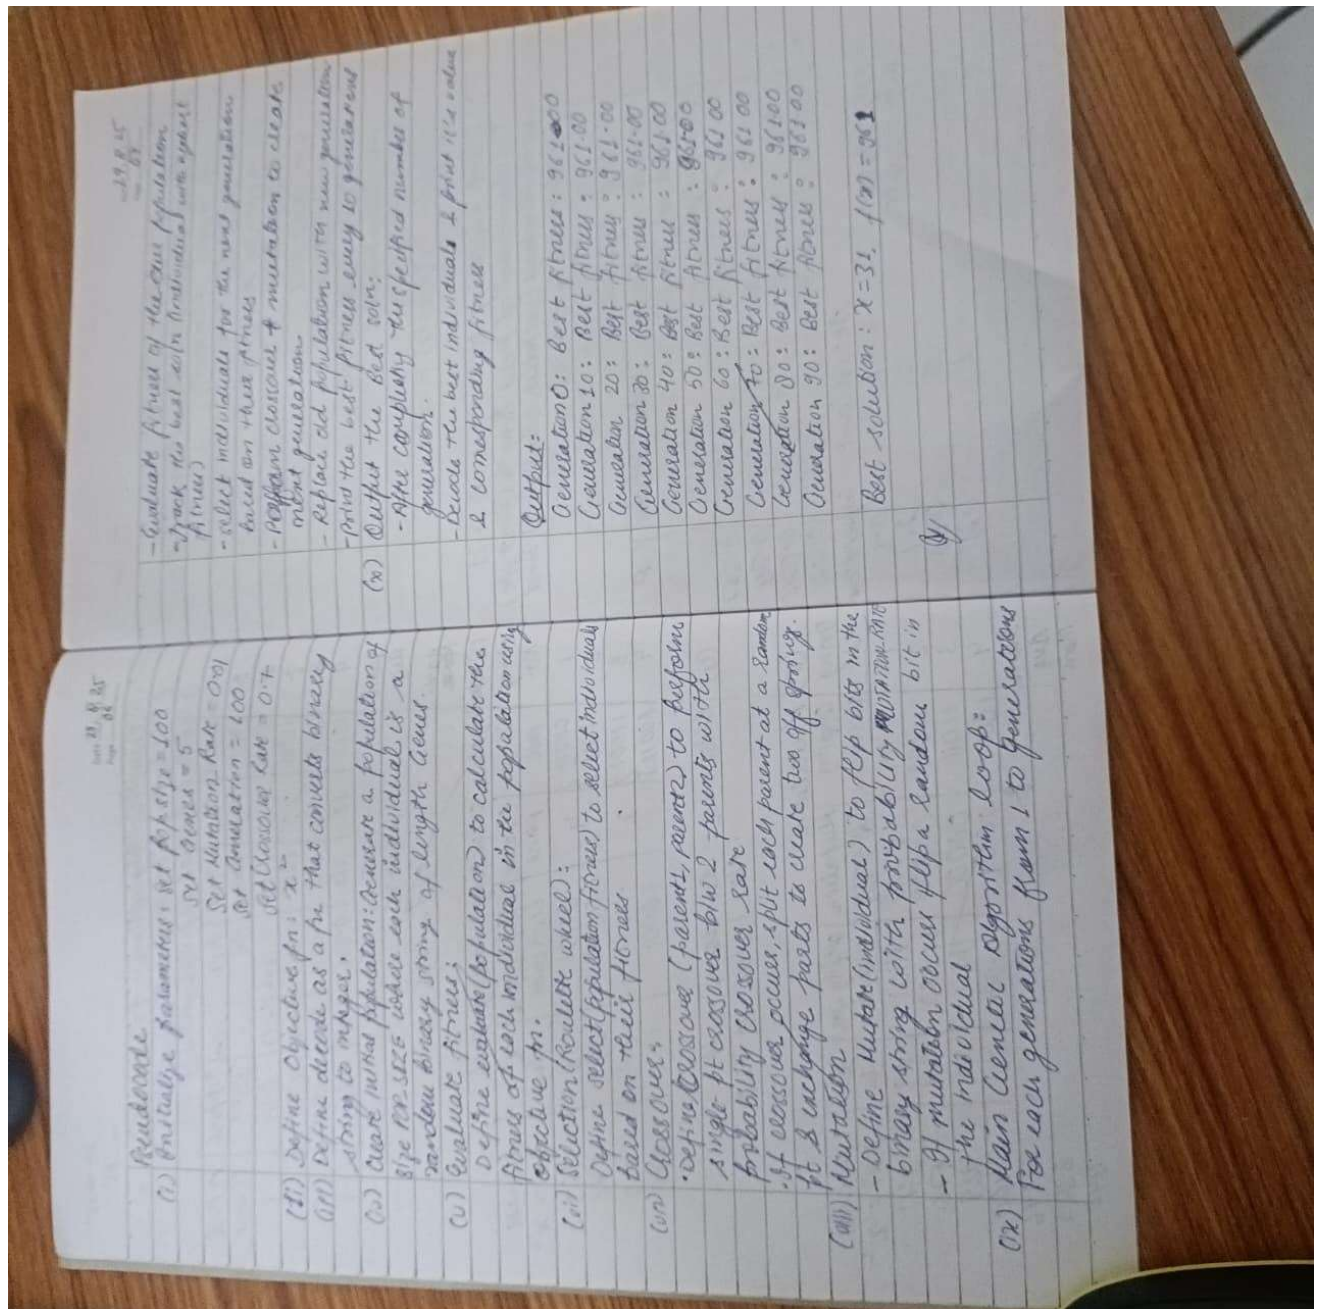 Pseudocode
(i) Initialize parameters: set pop size = 100
set Genes = 5
Set Mutation Rate = 0.01
Set Generation = 100
Set Crossover Rate = 0.7
(ii) Define Objective fn: x²
(iii) Define decode as a fn that converts binary
string to integer.
(iv) Create initial population: Generate a population of
size POP SIZE where each individual is a
random binary string of length Genes.
(v) Evaluate fitness:
Define evaluate (population) to calculate the
fitness of each individual in the population using
objective fn.
(vi) Selection (Roulette wheel):
Define select (population fitness) to select individuals
based on their fitness
(vii) Crossover:
• Define Crossover (parent1, parent2) to perform
single pt crossover b/w 2 parents with
probability crossover rate
• If crossover occurs, split each parent at a random
pt & exchange parts to create two off spring.
(viii) Mutation
- Define Mutate (individual) to flip bits in the
binary string with probability MUTATION-RATE
- If mutation occurs flip a random bit in
the individual
(ix) Main Genetic algorithm loop:
For each generations from 1 to generations
- Evaluate fitness of the curr population
- Track the best soln (individual with highest
fitness)
- select individuals for the next generation
based on their fitness
- Perform crossover & mutation to create
next generation.
- Replace old population with new generation
- Print the best fitness every 10 generations
(x) Output the Best soln:
- After completing the specified number of
generation.
- Decode the best individuals & print its value
& corresponding fitness
Output:
Generation 0: Best fitness: 961.00
Generation 10: Best fitness: 961.00
Generation 20: Best fitness: 961.00
Generation 30: Best fitness: 961.00
Generation 40: Best fitness: 961.00
Generation 50: Best fitness: 961.00
Generation 60: Best fitness: 961.00
Generation 70: Best fitness: 961.00
Generation 80: Best fitness: 961.00
Generation 90: Best fitness: 961.00
Best solution: x = 31, f(x) = 961